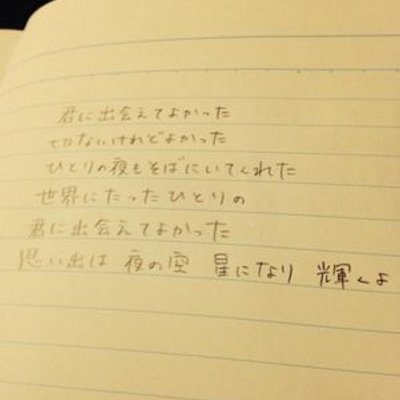 君に出会えてよかった
切ないけれどよかった
ひとりの夜もそばにいてくれた
世界にたったひとりの
君に出会えてよかった
思い出は 夜の空 星になり 輝くよ